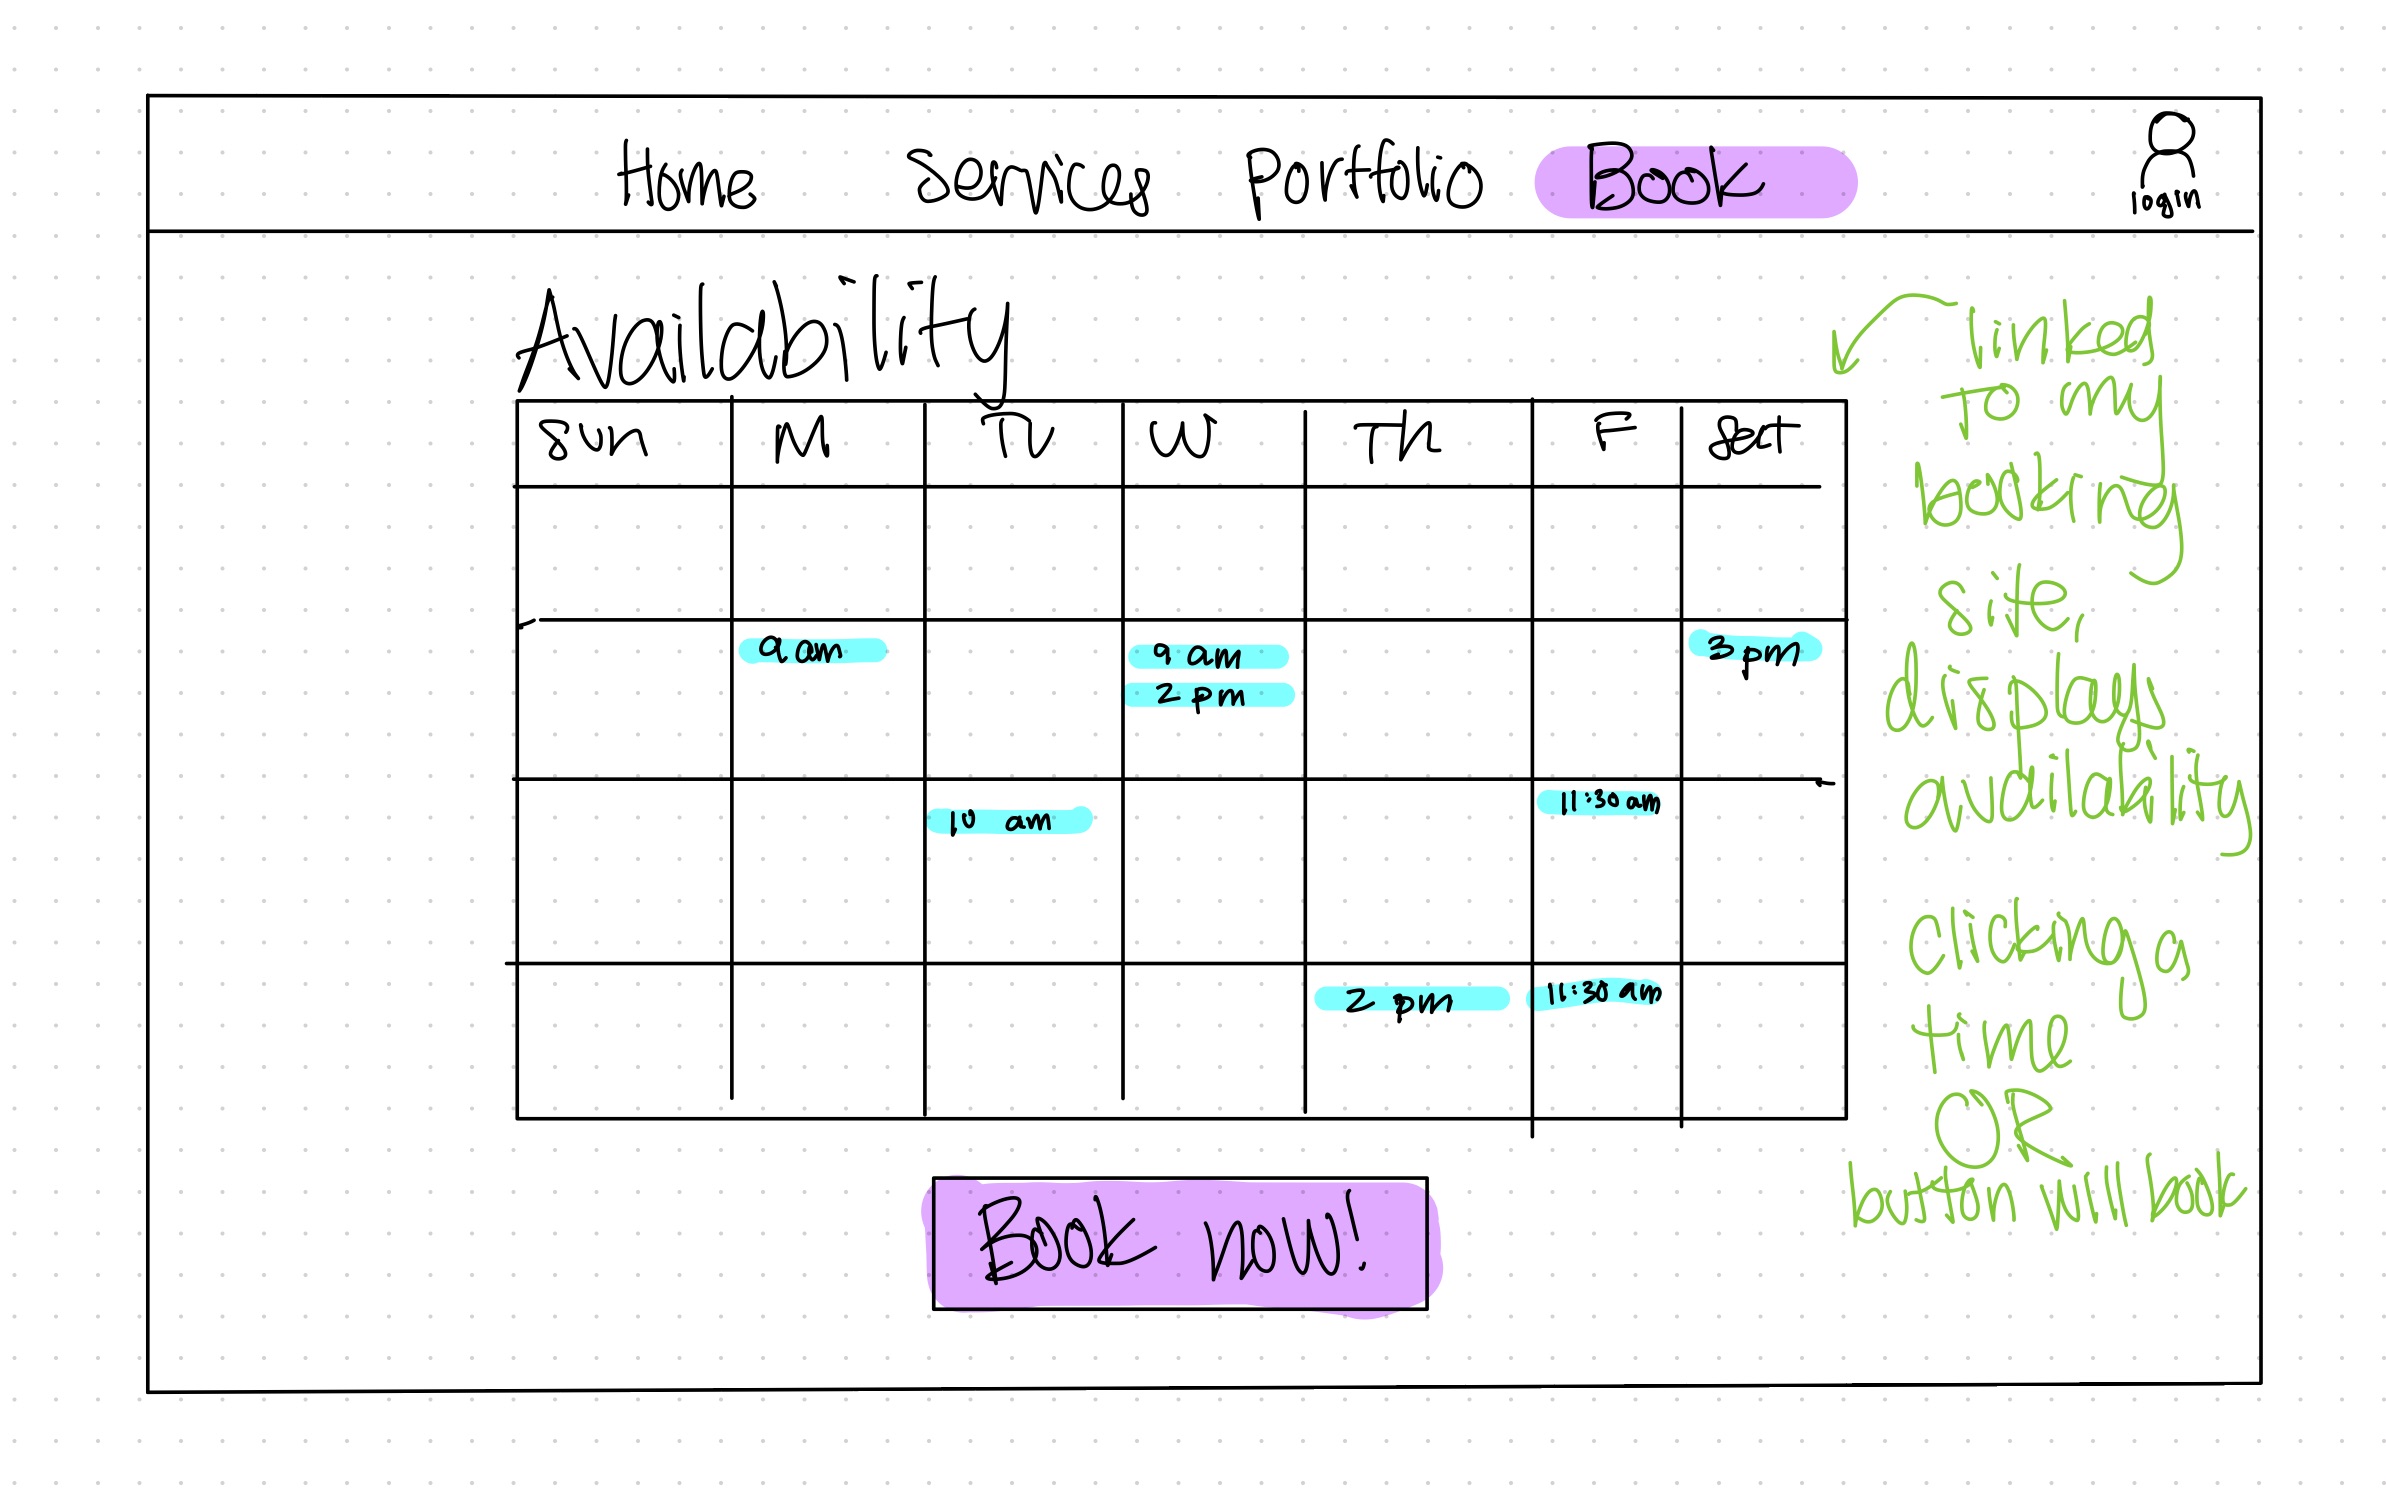 Home Services Portfolio Book
login
Availability
Sun M Tu W Th F Sat
9 am 9 am 3 pm
2 pm
10 am 11:30 am
2 pm 11:30 am
Book now!
linked
to my
booking
site,
displays
availability
clicking a
time
OR
button will book